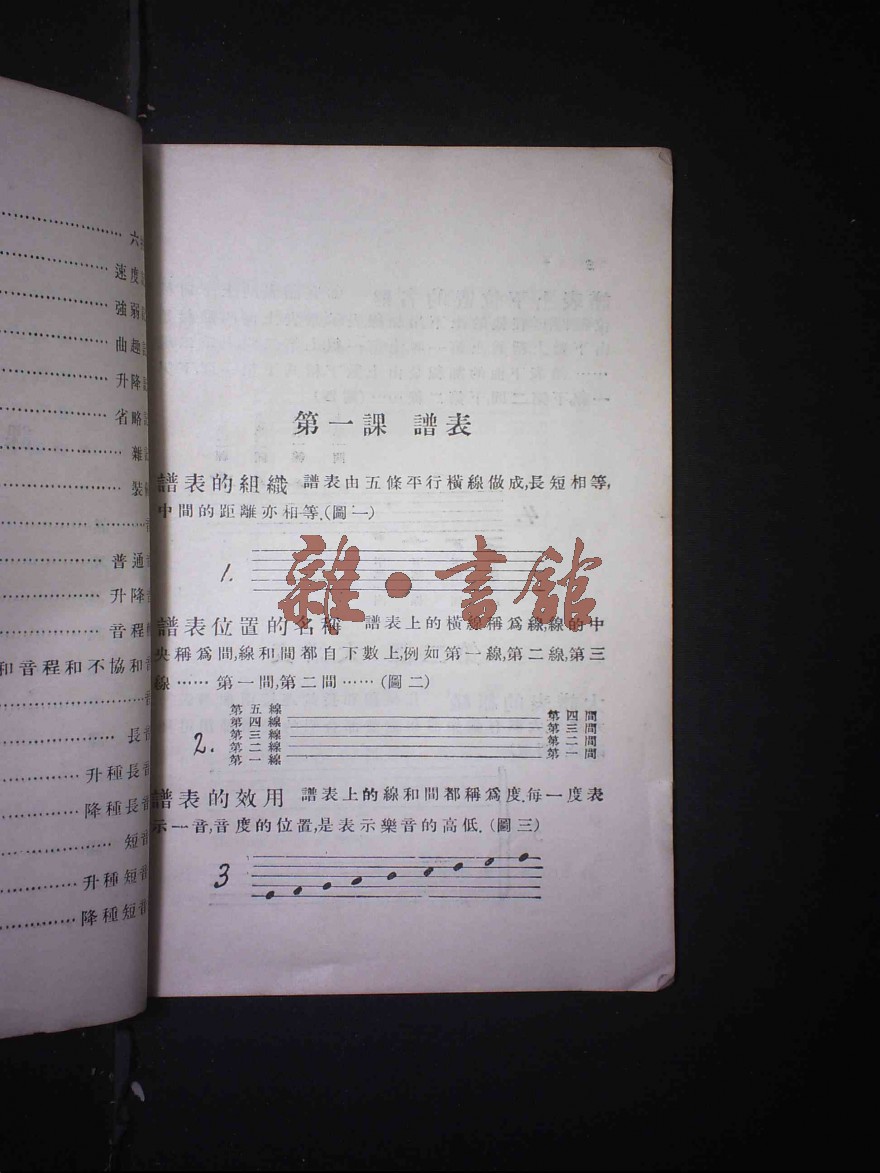 六
速度
強弱
曲趣
升降
省略
雜
裝
普通
升降
音程
和音程和不協和
長音
升種長音
降種長音
短音
升種短音
降種短音
第一課 譜表
譜表的組織 譜表由五條平行橫線做成,長短相等,
中間的距離亦相等.(圖一)
1.
雜·書館
譜表位置的名稱 譜表上的橫線稱爲線,線的中
央稱爲間,線和間都自下數上,例如第一線,第二線,第三
線……第一間,第二間……(圖二)
2.
第五線
第四線 第四間
第三線 第三間
第二線 第二間
第一線 第一間
譜表的效用 譜表上的線和間都稱爲度,每一度表
示一音,音度的位置,是表示樂音的高低.(圖三)
3